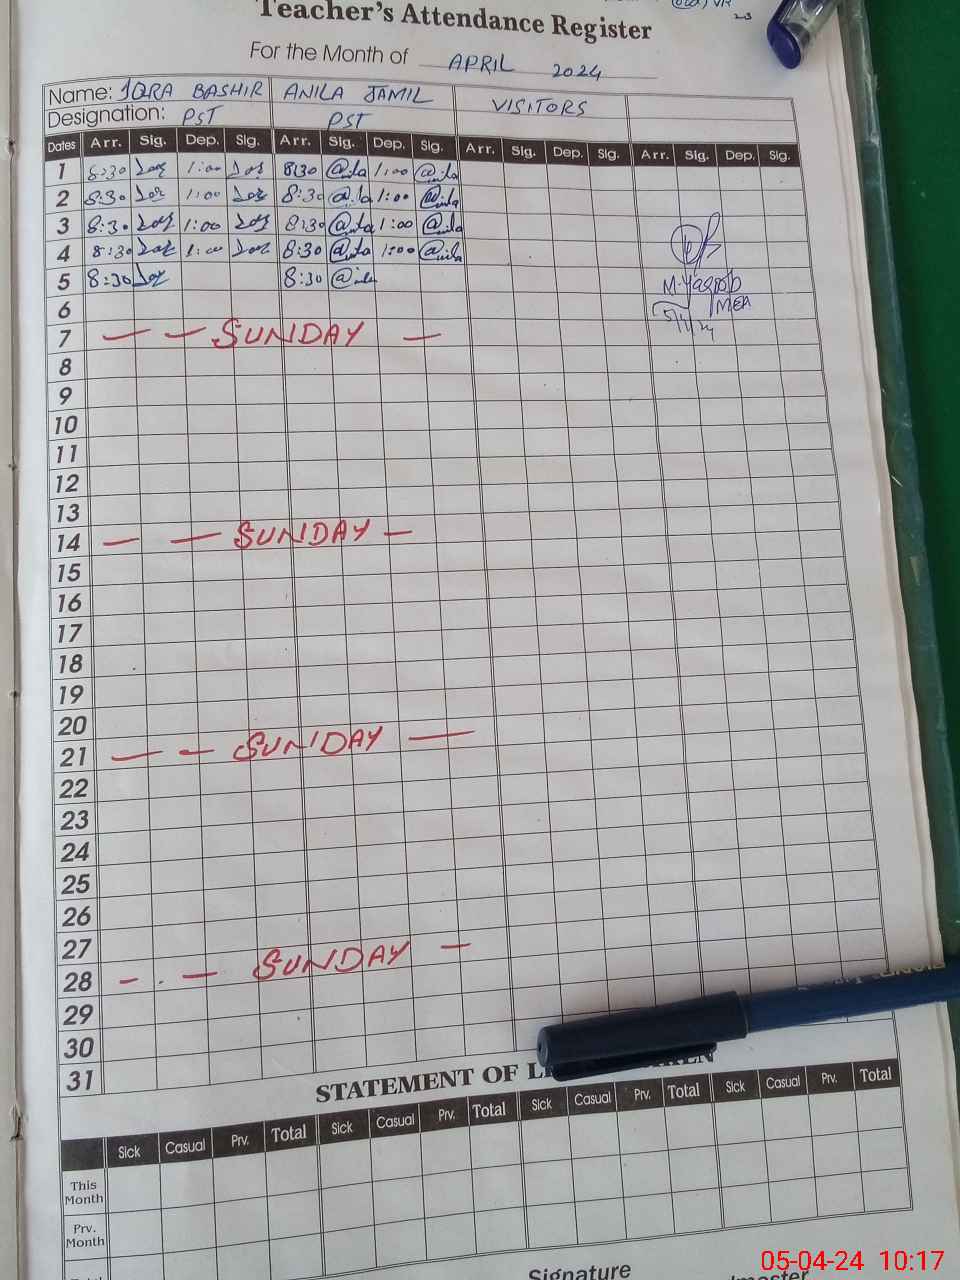 Teacher's Attendance Register
For the Month of APRIL 2024
Name: IQRA BASHIR ANILA JAMIL VISITORS
Designation: PST PST
Dates Arr. Sig. Dep. Sig. Arr. Sig. Dep. Sig. Arr. Sig. Dep. Sig. Arr. Sig. Dep. Sig.
1 8:30 1:00 8:30 @nila 1:00 @nila
2 8:30 1:00 8:30 @nila 1:00 @nila
3 8:30 1:00 8:30 @nila 1:00 @nila
4 8:30 1:00 8:30 @nila 1:00 @nila
5 8:30 8:30 @nila
M. Yaqoob
6 MEA
7 — — SUNDAY —
8
9
10
11
12
13
14 — — SUNDAY —
15
16
17
18
19
20
21 — — SUNDAY —
22
23
24
25
26
27
28 - - — SUNDAY —
29
30
31
STATEMENT OF
Sick Casual Prv. Total Sick Casual Prv. Total Sick Casual Prv. Total Sick Casual Prv. Total
This Month
Prv. Month
Signature
05-04-24 10:17